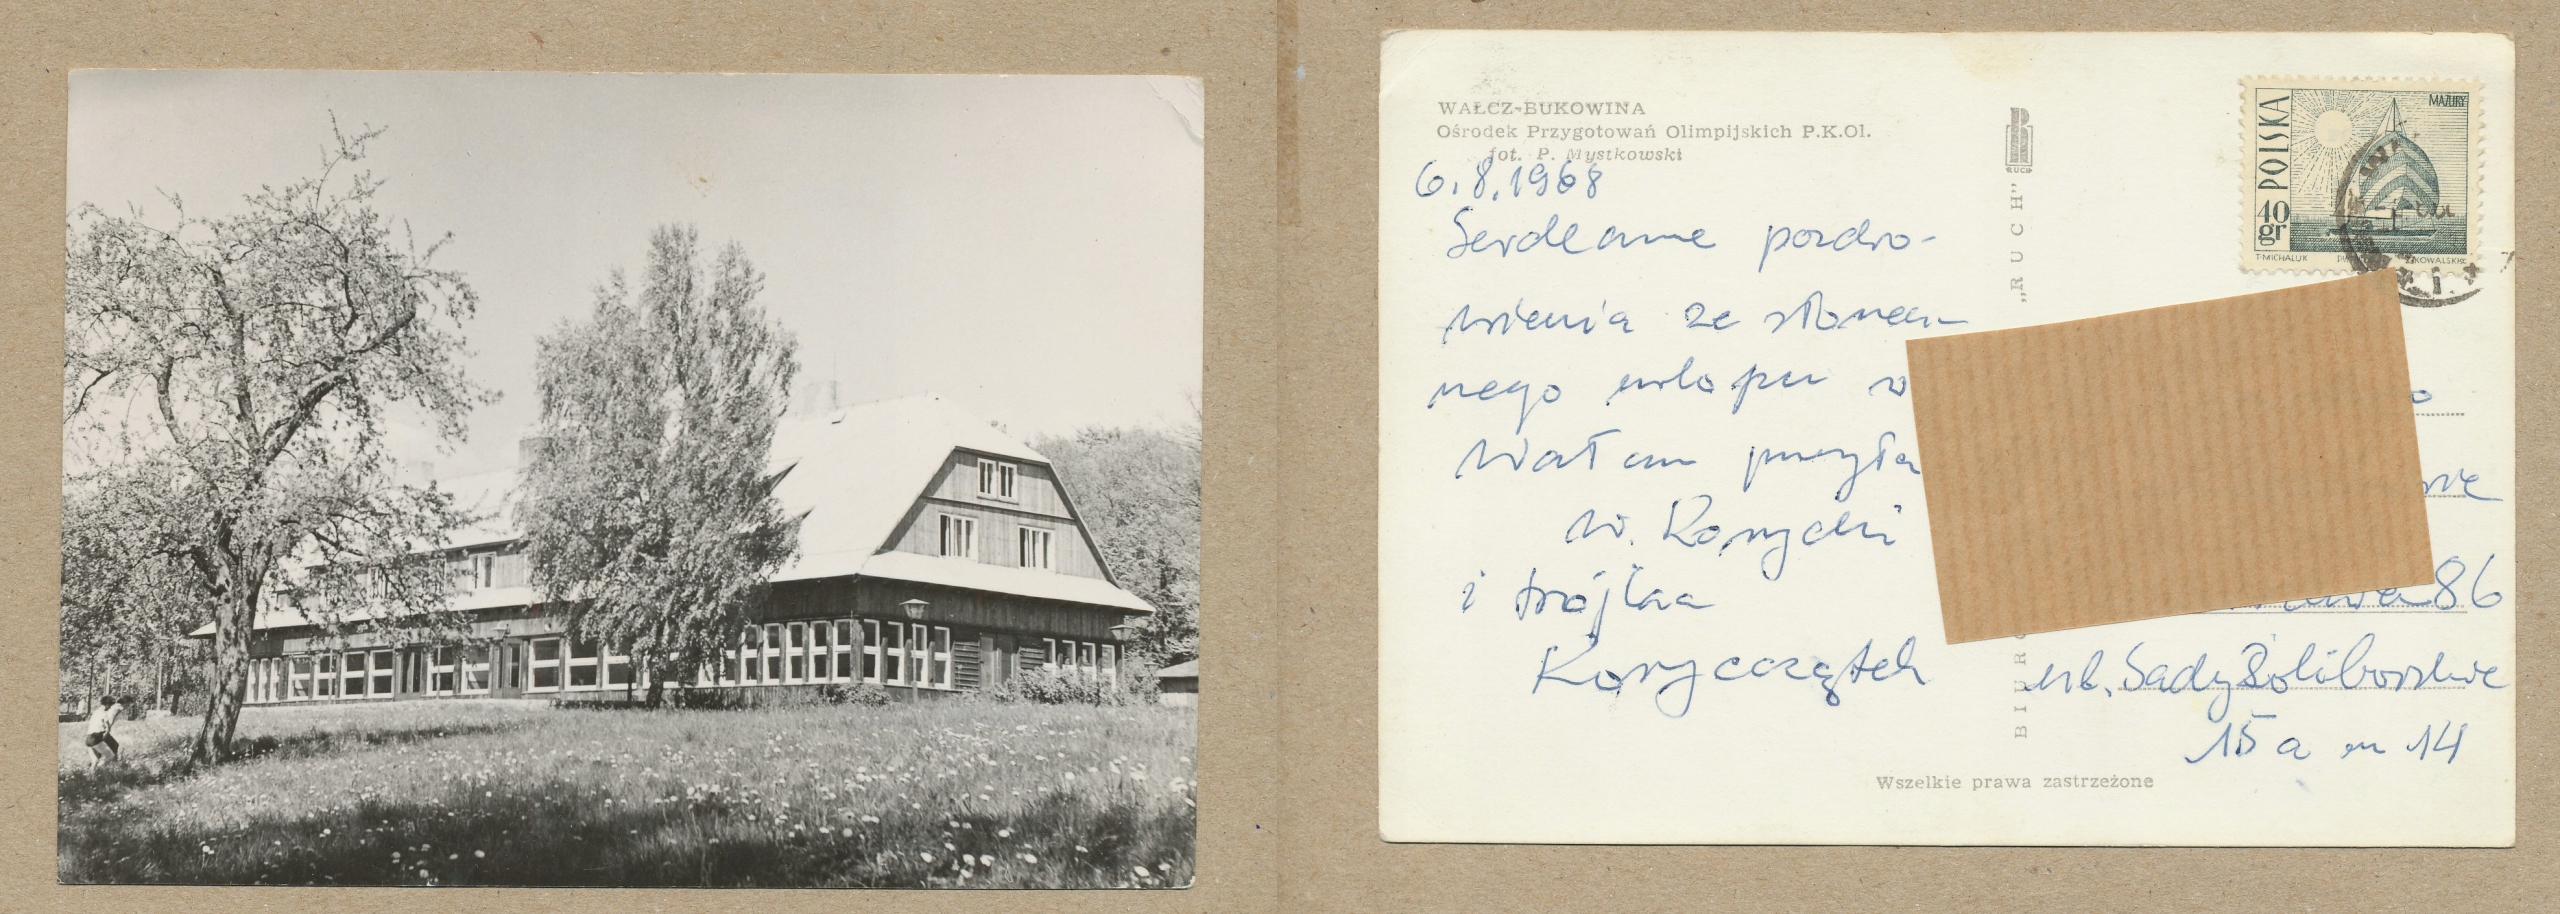 WAŁCZ-BUKOWINA
Ośrodek Przygotowań Olimpijskich P.K.Ol.
fot. P. Mystkowski
6.8.1968
Serdeczne pozdro-
wienia ze słonecz-
nego urlopu w
Wałczu przysła
W. Korycki
i trójka
Korycczątek
RUCH
„RUCH”
BIURO
POLSKA
40
gr
MAZURY
T·MICHALUK
KOWALSKI
86
ul. Sady Żoliborskie
15 a m 14
Wszelkie prawa zastrzeżone